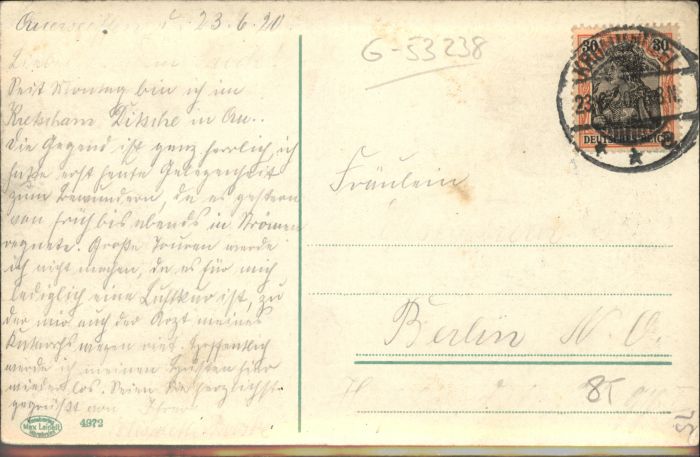 23.6.20.
Seit Montag bin ich im
Kretscham Ditsche in
Die Gegend ist ganz herrlich, ich
habe erst heute Gelegenheit
zum bewundern, da es gestern
von früh bis abends in Strömen
regnete. Große Touren werde
ich nicht machen, da es für mich
lediglich eine Luftkur ist, zu
der mir auch der Arzt meines
Katarrhs wegen riet. Hoffentlich
werde ich meinen Husten hier
wieder los. Seien Sie herzlichst
gegrüßt von Ihrer
4372
G-53238
30 30
DEUTSCHES REICH
Fräulein
Berlin N. O.
85